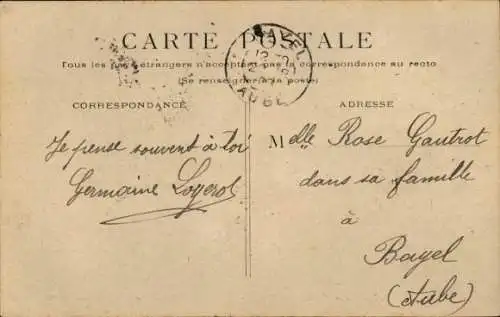 CARTE POSTALE
Tous les pays étrangers n'acceptent pas la correspondance au recto
(Se renseigner à la poste)
BAYEL
AUBE
CORRESPONDANCE
ADRESSE
Je pense souvent à toi
Germaine
Melle Rose Gautrot
dans sa famille
à
Bayel
(Aube)